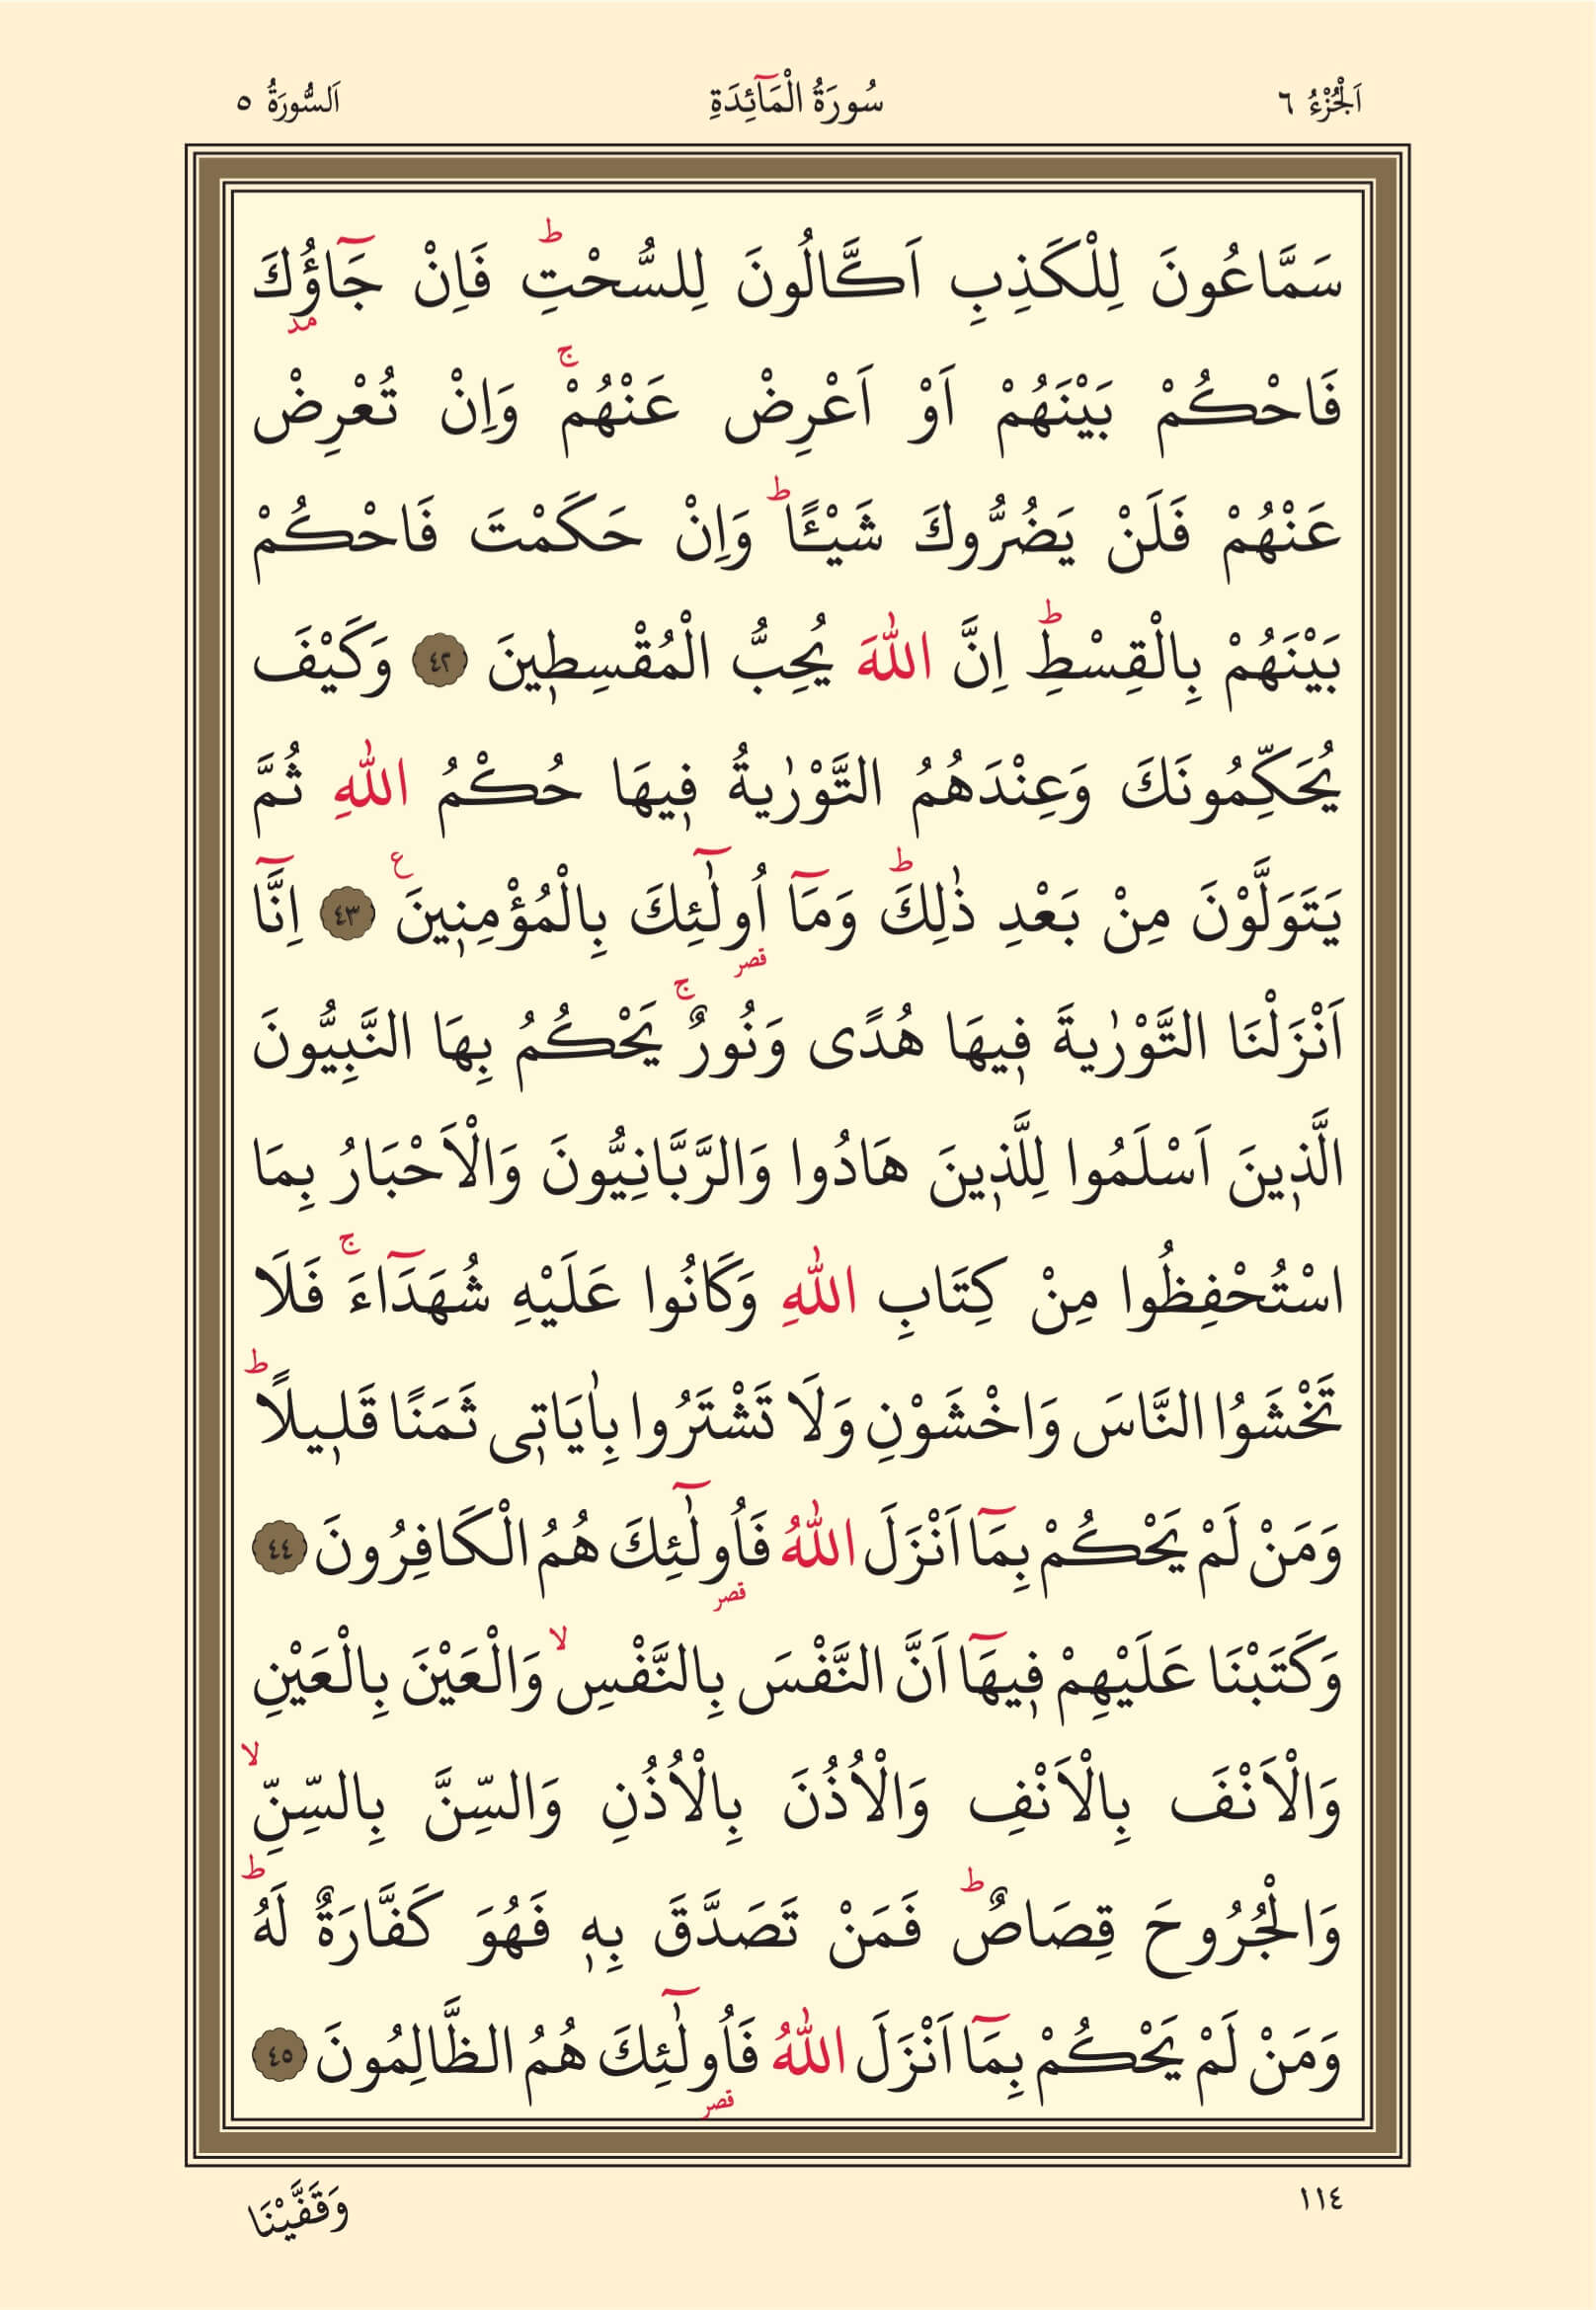 اَلْجُزْءُ ٦ سُورَةُ الْمَٓائِدَةِ اَلسُّورَةُ ٥
سَمَّاعُونَ لِلْكَذِبِ اَكَّالُونَ لِلسُّحْتِۜ فَاِنْ جَٓاؤُ۫كَ
فَاحْكُمْ بَيْنَهُمْ اَوْ اَعْرِضْ عَنْهُمْۚ وَاِنْ تُعْرِضْ
عَنْهُمْ فَلَنْ يَضُرُّوكَ شَيْـًٔاۜ وَاِنْ حَكَمْتَ فَاحْكُمْ
بَيْنَهُمْ بِالْقِسْطِۜ اِنَّ اللّٰهَ يُحِبُّ الْمُقْسِط۪ينَ ٤٢ وَكَيْفَ
يُحَكِّمُونَكَ وَعِنْدَهُمُ التَّوْرٰيةُ ف۪يهَا حُكْمُ اللّٰهِ ثُمَّ
يَتَوَلَّوْنَ مِنْ بَعْدِ ذٰلِكَۜ وَمَٓا اُو۬لٰٓئِكَ بِالْمُؤْمِن۪ينَ۟ ٤٣ اِنَّٓا
اَنْزَلْنَا التَّوْرٰيةَ ف۪يهَا هُدًى وَنُورٌۚ يَحْكُمُ بِهَا النَّبِيُّونَ
الَّذ۪ينَ اَسْلَمُوا لِلَّذ۪ينَ هَادُوا وَالرَّبَّانِيُّونَ وَالْاَحْبَارُ بِمَا
اسْتُحْفِظُوا مِنْ كِتَابِ اللّٰهِ وَكَانُوا عَلَيْهِ شُهَدَٓاءَۚ فَلَا
تَخْشَوُا النَّاسَ وَاخْشَوْنِ وَلَا تَشْتَرُوا بِاٰيَات۪ى ثَمَنًا قَل۪يلًاۜ
وَمَنْ لَمْ يَحْكُمْ بِمَٓا اَنْزَلَ اللّٰهُ فَاُو۬لٰٓئِكَ هُمُ الْكَافِرُونَ ٤٤
وَكَتَبْنَا عَلَيْهِمْ ف۪يهَٓا اَنَّ النَّفْسَ بِالنَّفْسِۙ وَالْعَيْنَ بِالْعَيْنِ
وَالْاَنْفَ بِالْاَنْفِ وَالْاُذُنَ بِالْاُذُنِ وَالسِّنَّ بِالسِّنِّۙ
وَالْجُرُوحَ قِصَاصٌۜ فَمَنْ تَصَدَّقَ بِه۪ فَهُوَ كَفَّارَةٌ لَهُۜ
وَمَنْ لَمْ يَحْكُمْ بِمَٓا اَنْزَلَ اللّٰهُ فَاُو۬لٰٓئِكَ هُمُ الظَّالِمُونَ ٤٥
١١٤ وَقَفَّيْنَا